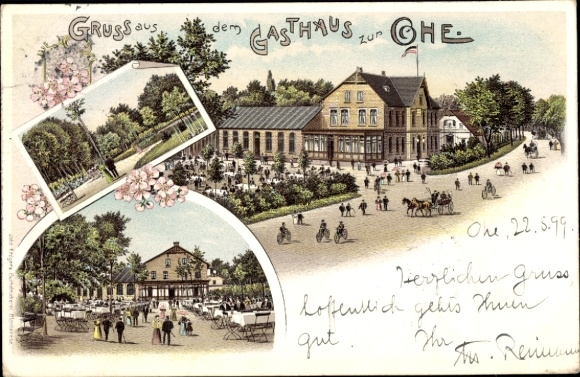 GRUSS aus dem GASTHAUS zur OHE.
Ohe, 22.5.99.
Herzlichen Gruss
hoffentlich gehts Ihnen
gut. Ihr
Reimann